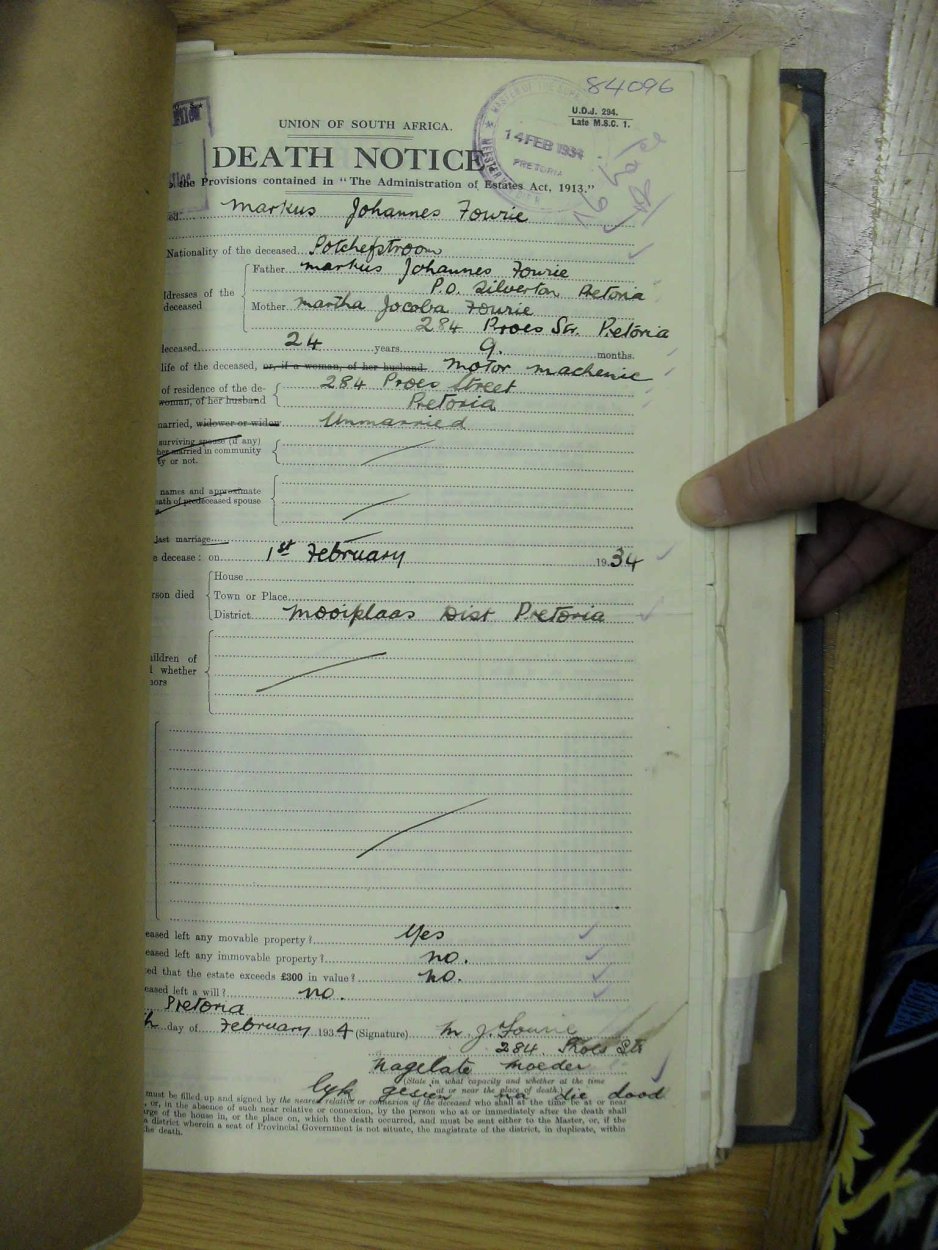 84096
U.D.J. 294.
Late M.S.C. 1.
UNION OF SOUTH AFRICA.
14 FEB 1934
PRETORIA
DEATH NOTICE
the Provisions contained in "The Administration of Estates Act, 1913."
Markus Johannes Fourie
Nationality of the deceased Potchefstroom
Father Markus Johannes Fourie
P.O. Silverton Pretoria
ddresses of the
deceased
Mother Martha Jocoba Fourie
284 Proes Str. Pretoria
deceased 24 years 9. months.
life of the deceased, or, if a woman, of her husband motor machenic
of residence of the de- 284 Proes Street
woman, of her husband Pretoria
married, widower or widow Unmarried
surviving spouse (if any)
her married in community
ty or not.
names and approximate
eath of predeceased spouse
last marriage
e decease: on 1st February 1934
House
rson died Town or Place
District Mooiplaas Dist Pretoria
hildren of
d whether
nors
eased left any movable property? Yes
eased left any immovable property? no.
ted that the estate exceeds £300 in value? no.
eased left a will? no.
Pretoria
th day of February 1934 (Signature) M. J. Fourie
284 Proes Str
Nagelate moeder
(State in what capacity and whether at the time
at or near the place of death.)
lyk gesien na die dood
must be filled up and signed by the nearest relative or connexion of the deceased who shall at the time be at or near
, or, in the absence of such near relative or connexion, by the person who at or immediately after the death shall
arge of the house in, or the place on, which the death occurred, and must be sent either to the Master, or, if the
a district wherein a seat of Provincial Government is not situate, the magistrate of the district, in duplicate, within
the death.